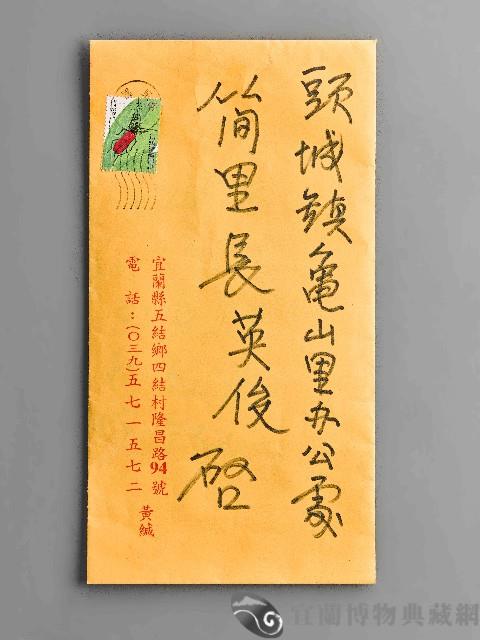 頭城鎮龜山里办公處
簡里長英俊 啓
宜蘭縣五結鄉四結村隆昌路94號
電話：(〇三九)五七一五七二 黃緘
宜蘭博物典藏網